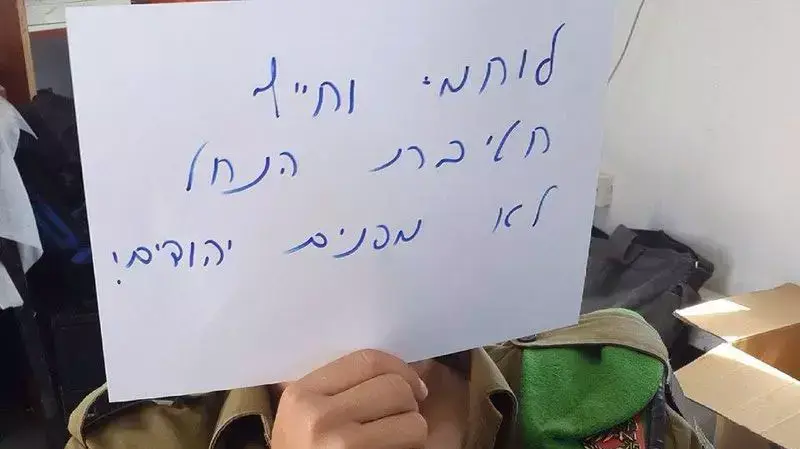 לוחמי וחיילי
חטיבת הנחל
לא מפנים יהודים!